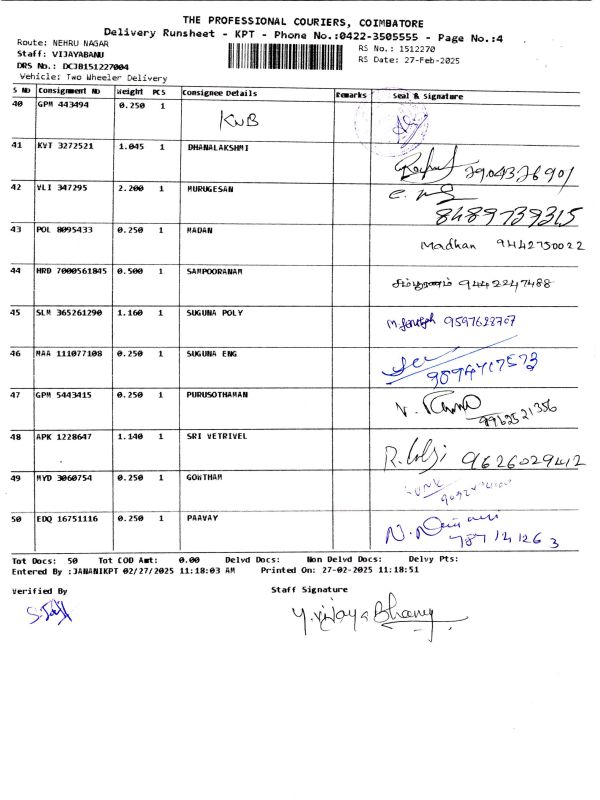 THE PROFESSIONAL COURIERS, COIMBATORE
Delivery Runsheet - KPT - Phone No.:0422-3505555 - Page No.:4
Route: NEHRU NAGAR
Staff: VIJAYABANU
DRS No.: DCJB151227004
Vehicle: Two Wheeler Delivery
RS No.: 1512270
RS Date: 27-Feb-2025
S No Consignment No Weight PCS Consignee Details Remarks Seal & Signature
40 GPM 443494 0.250 1 KVB
41 KVT 3272521 1.045 1 DHANALAKSHMI 7904376901
42 VLI 347295 2.200 1 MURUGESAN 8489739315
43 POL 8095433 0.250 1 MADAN Madhan 9442750022
44 HRD 7000561845 0.500 1 SAMPOORANAM சம்பூரணம் 9442247488
45 SLM 365261290 1.160 1 SUGUNA POLY 9597628707
46 MAA 111077108 0.250 1 SUGUNA ENG
47 GPM 5443415 0.250 1 PURUSOTHAMAN
48 APK 1228647 1.140 1 SRI VETRIVEL 9626029412
49 MYD 3060754 0.250 1 GOWTHAM
50 EDQ 16751116 0.250 1 PAAVAY
Tot Docs: 50 Tot COD Amt: 0.00 Delvd Docs: Non Delvd Docs: Delvy Pts:
Entered By :JANANIKPT 02/27/2025 11:18:03 AM Printed On: 27-02-2025 11:18:51
Verified By Staff Signature
Y. Vijaya Bhanu